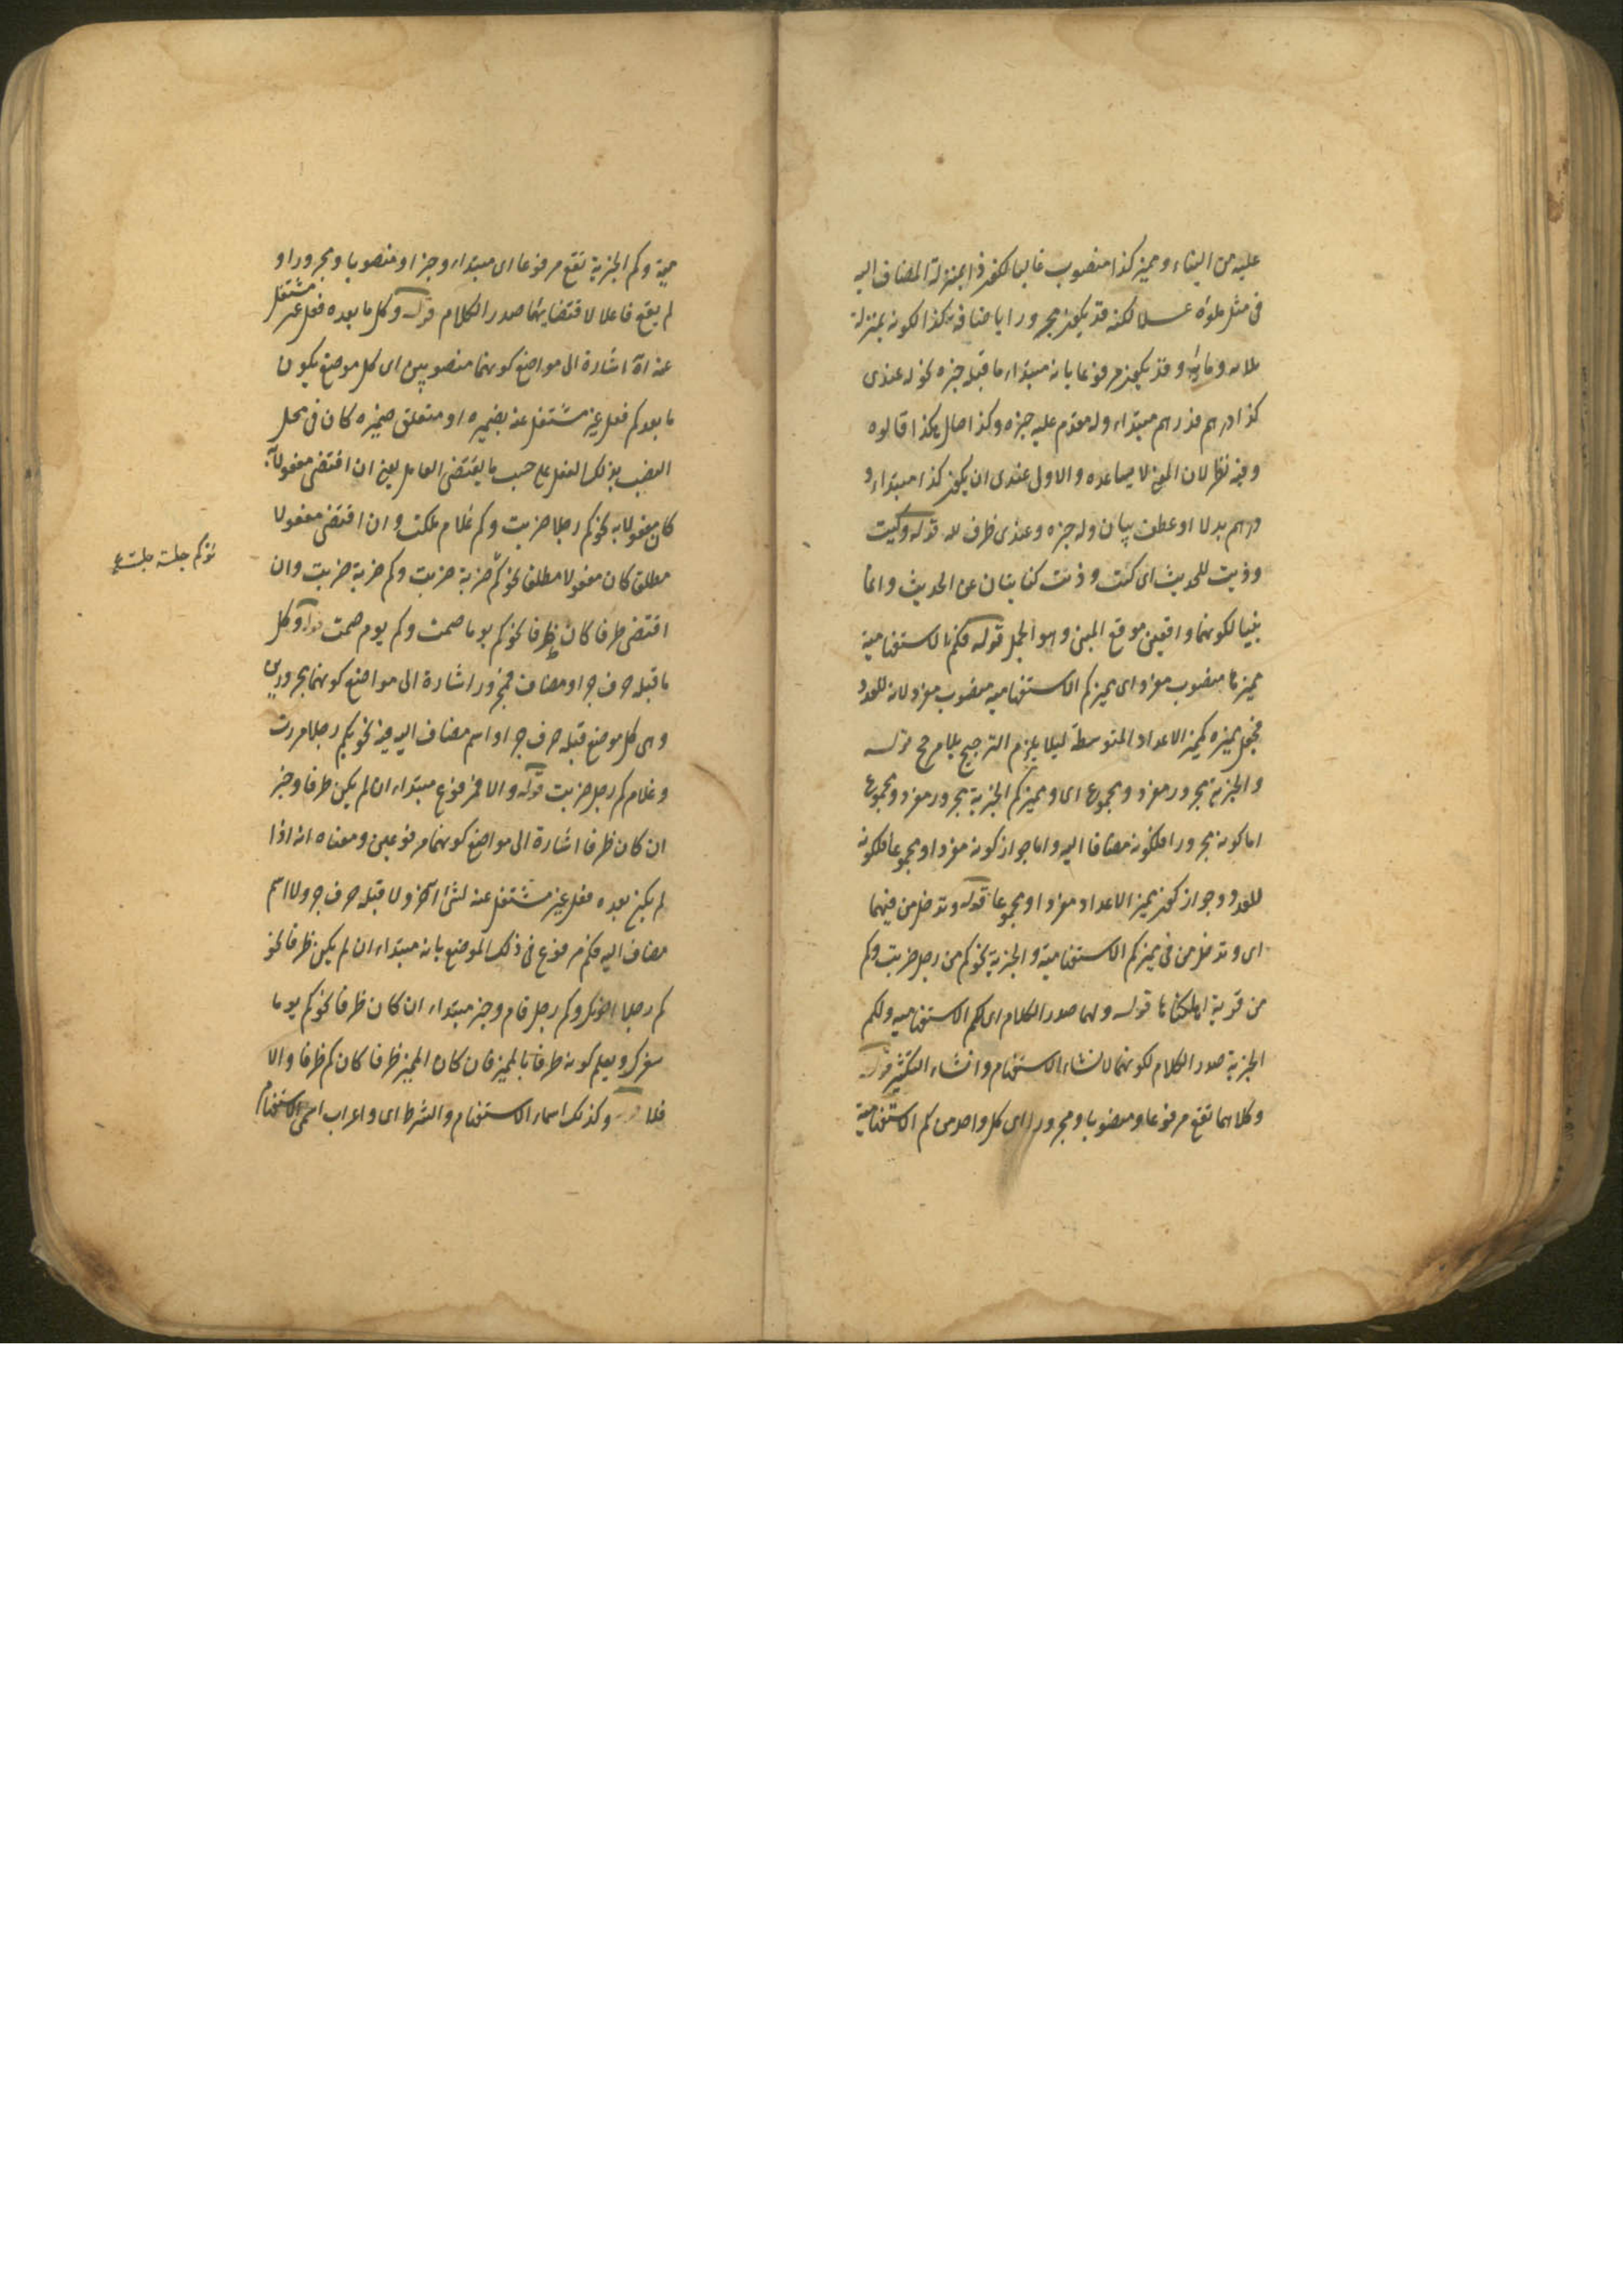 عليه من البناء ومميز كذا منصوب غالبا لكون ذا بمنزلة المضاف اليه
فى مثل ملؤه عسلا لكنه قد يكون مجرورا باضافة كذا لكونه بمنزلة
ثلاثه ومائة وقد يكون مرفوعا بانه مبتداء ما قبله خبره نحو له عندى
كذا درهم فدرهم مبتداء وله مقدم عليه خبره وكذا حال هكذا قالوه
وفيه نظر لان المعنى لا يساعده والاولى عندى ان يكون كذا مبتداء و
درهم بدلا او عطف بيان وله خبره وعندى ظرف له قوله وكيت
وذيت للحديث اى كيت وذيت كنايتان عن الحديث وانما
بنيا لكونهما واقعين موقع المبنى وهو الجمل قوله فكم الاستفهامية
مميزها منصوب مفرد اى مميز كم الاستفهاميه منصوب مفرد لانه للعدد
فجعل مميزه كمميز الاعداد المتوسطة ليلا يلزم الترجيح بلا مرجح قوله
والخبرية مجرور مفرد ومجموع اى ومميز كم الخبرية مجرور مفرد ومجموع
اما كونه مجرورا فلكونه مضافا اليه واما جواز كونه مفردا ومجموعا فلكونه
للعدد وجواز كون مميز الاعداد مفردا ومجموعا قوله وتدخل من فيهما
اى وتدخل من فى مميز كم الاستفهامية والخبرية نحو كم من رجل ضربت وكم
من قرية اهلكناها قوله ولهما صدر الكلام اى لكم الاستفهاميه ولكم
الخبرية صدر الكلام لكونهما لانشاء الاستفهام وانشاء التكثير قوله
وكلاهما تقع مرفوعا ومنصوبا ومجرورا اى كل واحد من كم الاستفهامية
مية وكم الخبرية تقع مرفوعا اى مبتداء وخبرا ومنصوبا ومجرورا و
لم يقع فاعلا لاقتضائهما صدر الكلام قوله وكل ما بعده فعل غير مشتغل
عنه اه اشارة الى مواضع كونهما منصوبين اى كل موضع يكون
ما بعد كم فعل غير مشتغل عنه بضميره او متعلق ضميره كان فى محل
النصب بذلك الفعل على حسب ما يقتضى العامل يعنى ان اقتضى مفعولا به
كان مفعولا به نحو كم رجلا ضربت وكم غلام ملكت وان اقتضى مفعولا
مطلق كان مفعولا مطلقا نحو كم ضربة ضربت وكم ضربة ضربت وان
نحو كم جلسة جلست
اقتضى ظرفا كان ظرفا نحو كم يوما صمت وكم يوم صمت قوله وكل
ما قبله حرف جر او مضاف فمجرور اشارة الى مواضع كونهما مجرورين
وهى كل موضع قبله حرف جر او اسم مضاف اليه فيه نحو بكم رجلا مررت
وغلام كم رجل ضربت قوله والا فمرفوع مبتداء ان لم يكن ظرفا وخبر
ان كان ظرفا اشارة الى مواضع كونهما مرفوعين ومعناه انه اذا
لم يكن بعده فعل غير مشتغل عنه لشئ آخر ولا قبله حرف جر ولا اسم
مضاف اليه فكم مرفوع فى ذلك الموضع بانه مبتداء ان لم يكن ظرفا نحو
كم رجلا اخوتك وكم رجل قام وخبر مبتداء ان كان ظرفا نحو كم يوما
سفرك ويعلم كونه ظرفا بالمميز فان كان المميز ظرفا كان كم ظرفا والا
فلا قوله وكذلك اسماء الاستفهام والشرط اى واعراب اسمى الاستفهام